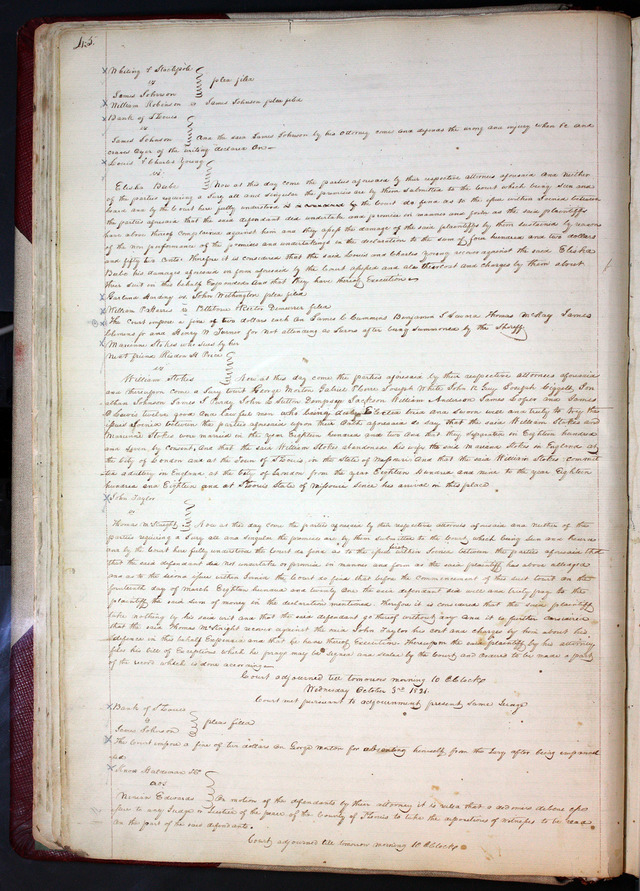 Whiting & Stackpole
vs plea filed
James Johnson
William Robinson vs James Johnson plea filed
Bank of St Louis
vs
James Johnson And the said James Johnson by his attorney comes and defends the wrong and injury when &c and
craves Oyer of the writing declared On
Louis & Charles Young
vs
Elisha Bebe Now at this day come the parties aforesaid by their respective attornies aforesaid And neither
of the parties requiring a Jury all and singular the premises are by them submitted to the Court which being seen and
heard and by the Court here fully understood the Court do find as to the issue within Joined between
the parties aforesaid that the said defendant did undertake and promise in manner and form as the said plaintiffs
have above thereof complained against him and they assess the damage of the said plaintiffs by them sustained by reason
of the non performance of the promises and undertakings in the declaration to the sum of four hundred and two dollars
and fifty two Cents. Therefore it is considered that the said Louis and Charles Young recover against the said Elisha
Bebe his damages aforesaid in form aforesaid by the Court assessed and also their cost and charges by them about
their suit in this behalf Expended And that they have thereof Execution
vs John Withington plea filed
William Harris vs demurrer filed
The Court impose a fine of two dollars each On James C Cummins Benjamin Thomas McKay James
and Henry W Turner for Not attending as Jurors after being summoned by the Sheriff
Marianne Stokes who sues by her
next friend
vs
William Stokes Now at this day come the parties aforesaid by their respective attornies aforesaid
and thereupon came a Jury towit George Morton Joseph White John R Guy Joseph
Johnson James John L Sutton Jackson William Anderson James and James
Lewis twelve good and lawful men who being duly Elected tried and Sworn well and truly to try the
issues Joined between the parties aforesaid upon their Oath aforesaid do say that the said William Stokes and
Marianne Stokes were married in the year Eighteen hundred and two and that they separated in Eighteen hundred
and Seven by Consent, And that the said William Stokes abandoned his wife the said Marianne Stokes in England at
the City of London and at the Town of St Louis in the State of Missouri And that the said William Stokes commit
ted adultery in England at the City of London from the year Eighteen Hundred and nine to the year Eighteen
hundred and Eighteen and at St Louis State of Missouri since his arrival in this place
John Taylor
vs
Thomas McKnight Now at this day come the parties aforesaid by their respective attornies aforesaid and neither of the
parties requiring a Jury all and singular the premises are by them submitted to the Court, which being seen and heard
and by the Court here fully understood the Court do find as to the first issue within Joined between the parties aforesaid that
that the said defendant did not undertake or promise in manner and form as the said plaintiff has above alledged
and as to the second issue within Joined the Court do find that before the commencement of this suit towit on the
fourteenth day of March Eighteen hundred and twenty One the said defendant did well and truly pay to the
plaintiff the said sum of money in the declaration mentioned. therefore it is considered that the said plaintiff
take nothing by his said writ and that the said defendant go thereof without day And it is further considered
that the said Thomas McKnight recover against the said John Taylor his cost and charges by him about his
defence in this behalf Expended and that he have thereof Execution. Thereupon the said plaintiff by his attorney
files his bill of Exceptions which he prays may be signed and sealed by the Court and ordered to be made a part
of the record which is done accordingly
Court adjourned till tomorrow morning 10 OClock
Wednesday October 3rd 1821
Court met pursuant to adjournment, present, Same Judge
Bank of St Louis
vs pleas filed
Johnson
The Court impose a fine of ten dollars on George Morton for absenting himself from the Jury after being empannel
led
vs
Edwards On motion of the defendants by their attorney it is ruled that a dedimus do issue
to any Judge or Justice of the peace of the County of St Louis to take the depositions of witnesses to be read
On the part of the said defendants
Court adjourned till tomorrow morning 10 OClock